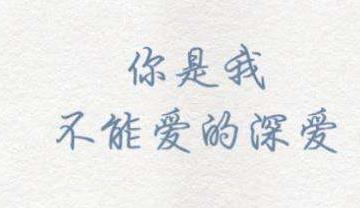 你是我
不能爱的深爱